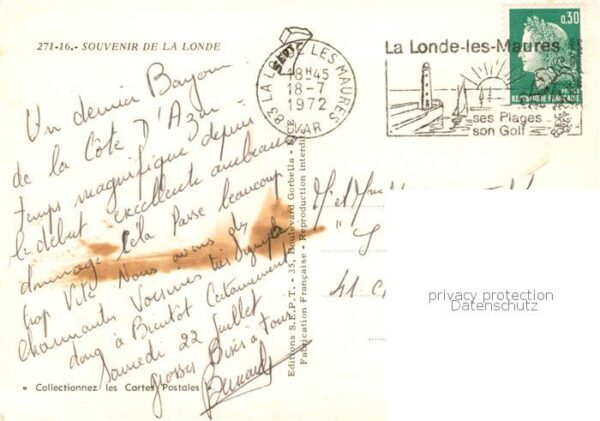 271-16.- SOUVENIR DE LA LONDE
83 LA LONDE LES MAURES
18H45
18-7
1972
VAR
La Londe-les-Maures
ses Plages
son Golf
0,30
POSTES
REPUBLIQUE FRANÇAISE
Un dernier Bonjour
de la Côte D'Azur
temps magnifique depuis
le début excellente ambiance
dommage Cela Passe beaucoup
trop Vite Nous avons de
charmantes Voisines très
donc à Bientôt Certainement
Samedi 22 Juillet
grosses Bises à Tous
Bernard
Editions S.E.P.T. - 35, Boulevard Gorbella - NICE
Fabrication Française - Reproduction interdite
M et Mme
41
« Collectionnez les Cartes Postales »
privacy protection
Datenschutz